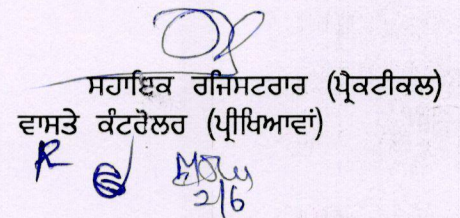 ਸਹਾਇਕ ਰਜਿਸਟਰਾਰ (ਪ੍ਰੈਕਟੀਕਲ)
ਵਾਸਤੇ ਕੰਟਰੋਲਰ (ਪ੍ਰੀਖਿਆਵਾਂ)
2/6